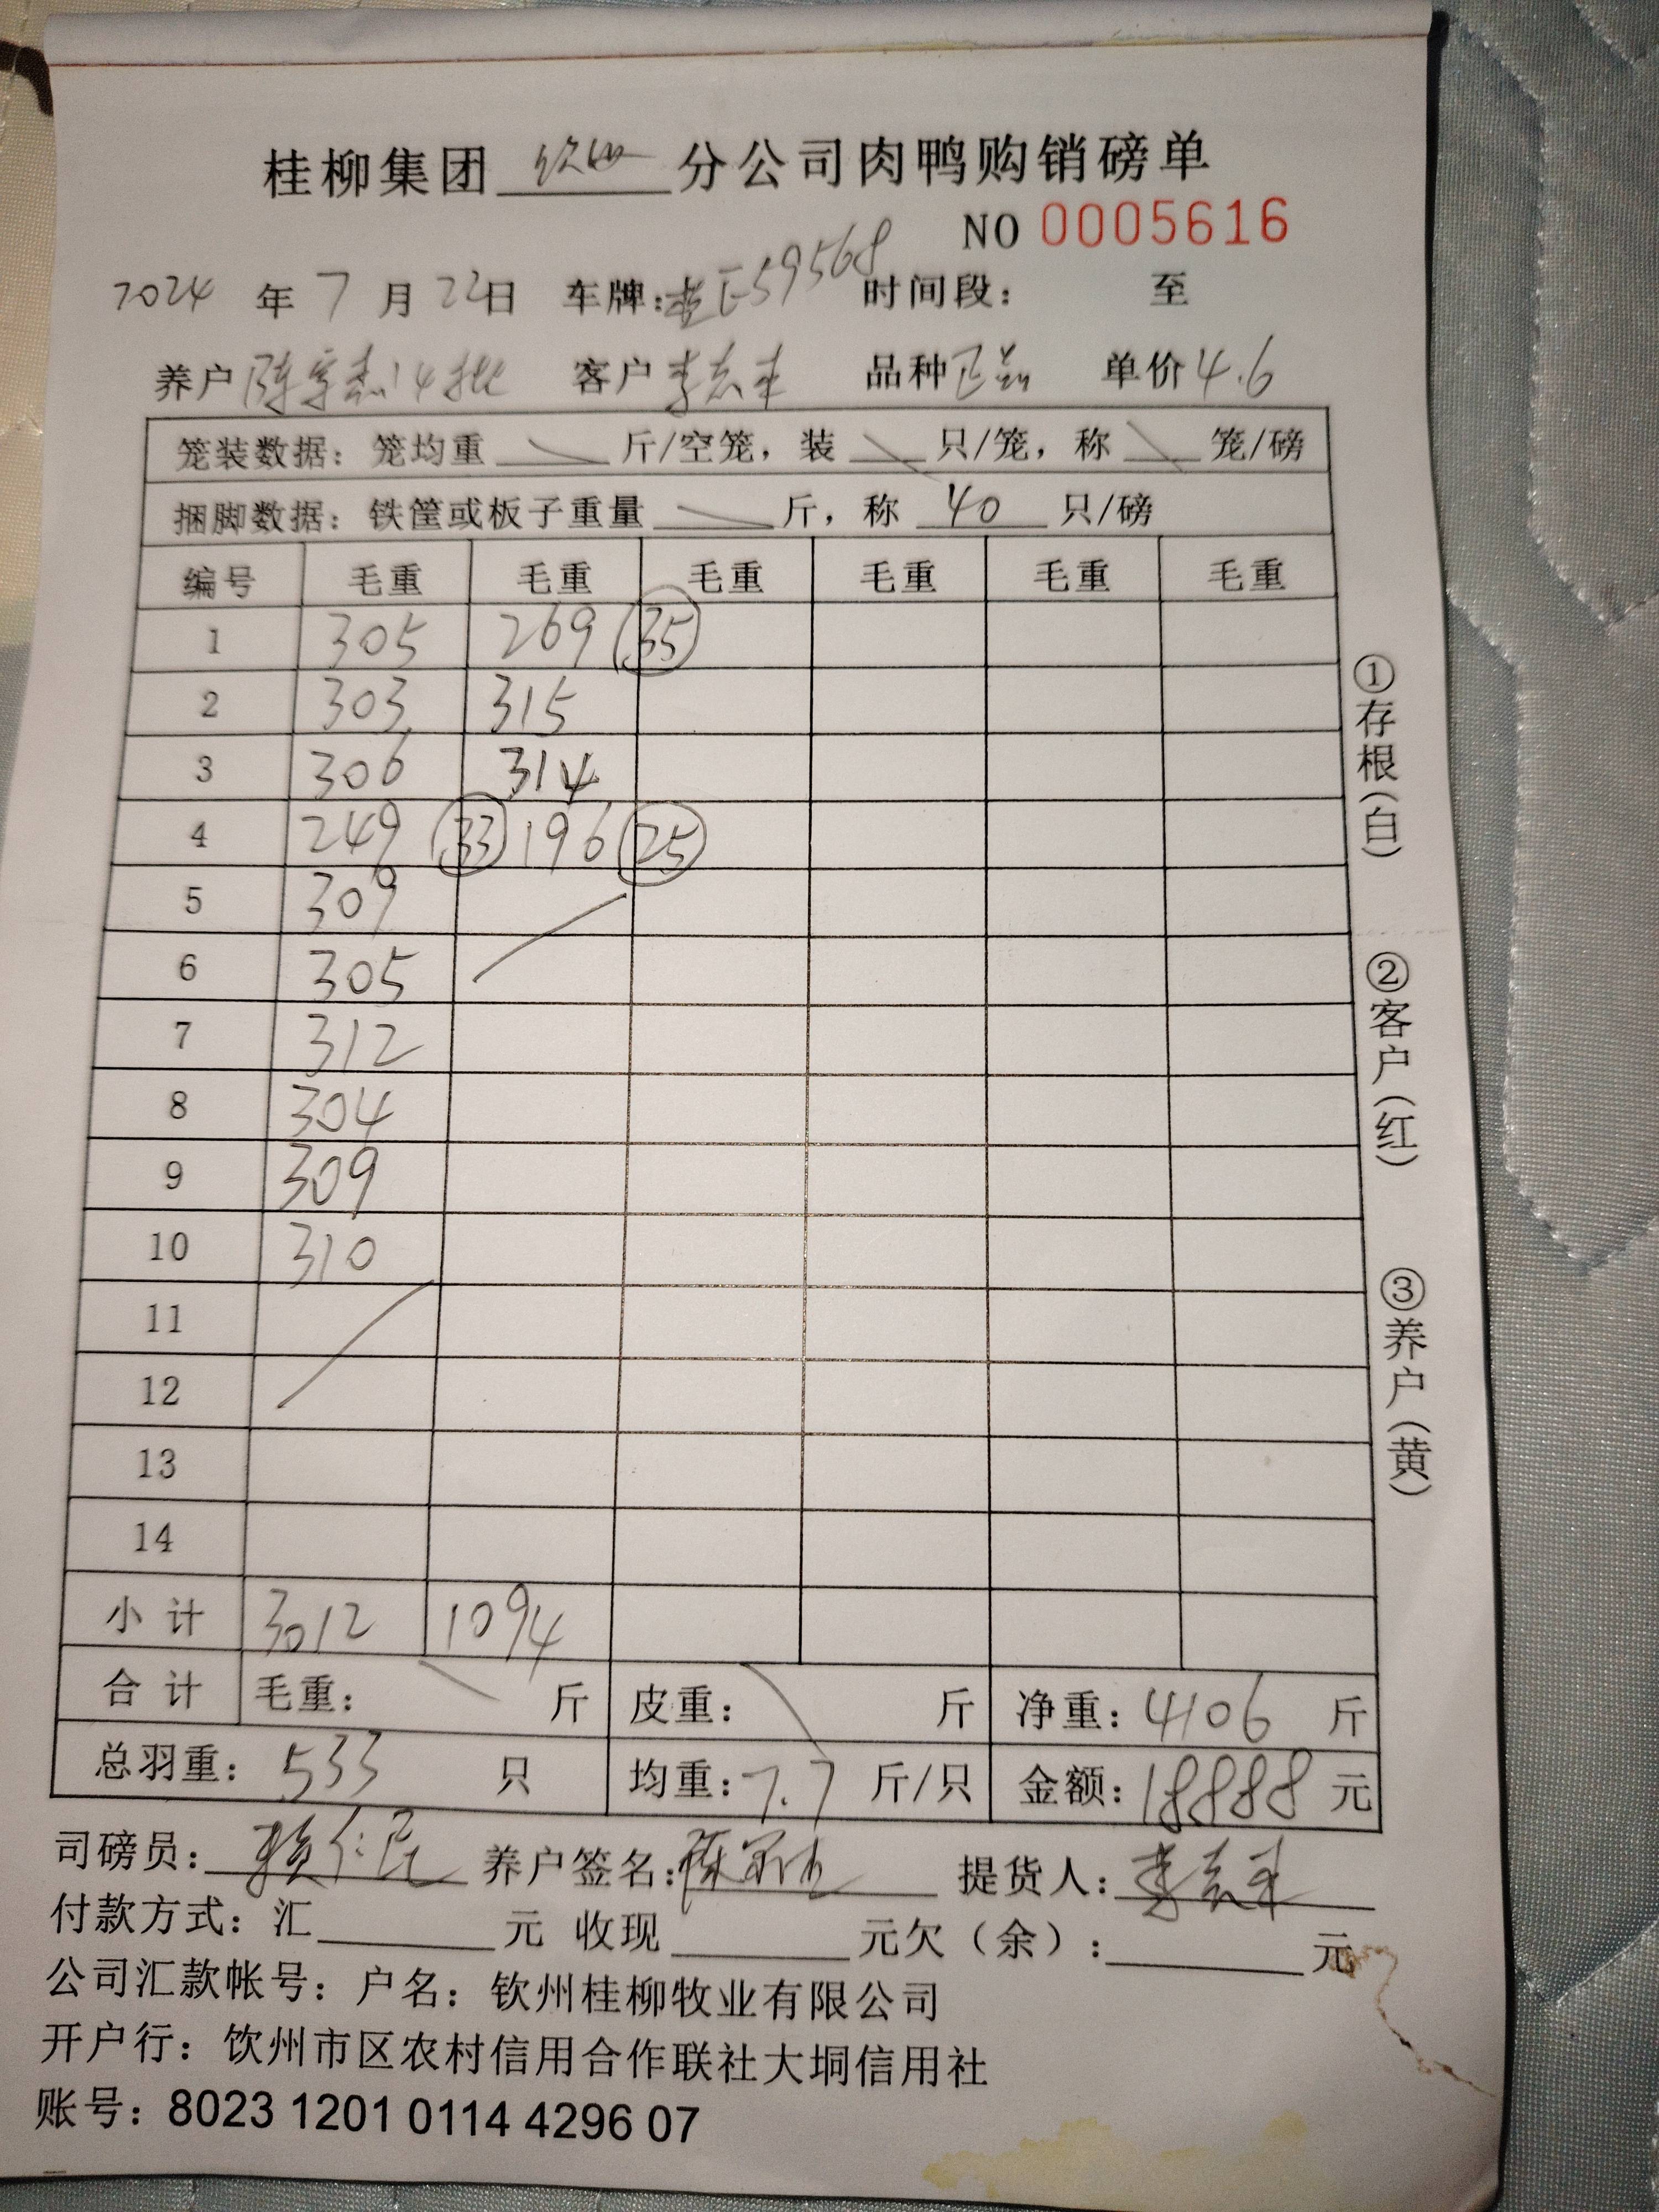 桂柳集团 钦州 分公司肉鸭购销磅单
NO 0005616
2024 年 7 月 22日 车牌:桂E59568 时间段: 至
养户 陈 14批 客户 李志 品种 正品 单价 4.6
笼装数据: 笼均重 斤/空笼, 装 只/笼, 称 笼/磅
捆脚数据: 铁筐或板子重量 斤, 称 40 只/磅
编号 毛重 毛重 毛重 毛重 毛重 毛重
1 305 269 35
2 303 315
3 306 314
4 249 33 196 25
5 309
6 305
7 312
8 304
9 309
10 310
11
12
13
14
小计 3012 1094
合计 毛重: 斤 皮重: 斤 净重: 4106 斤
总羽重: 533 只 均重: 7.7 斤/只 金额: 18888 元
司磅员: 赖仁 养户签名: 陈 提货人: 李志
付款方式: 汇 元 收现 元欠(余): 元
公司汇款帐号: 户名: 钦州桂柳牧业有限公司
开户行: 饮州市区农村信用合作联社大垌信用社
账号: 8023 1201 0114 4296 07
①存根(白)
②客户(红)
③养户(黄)